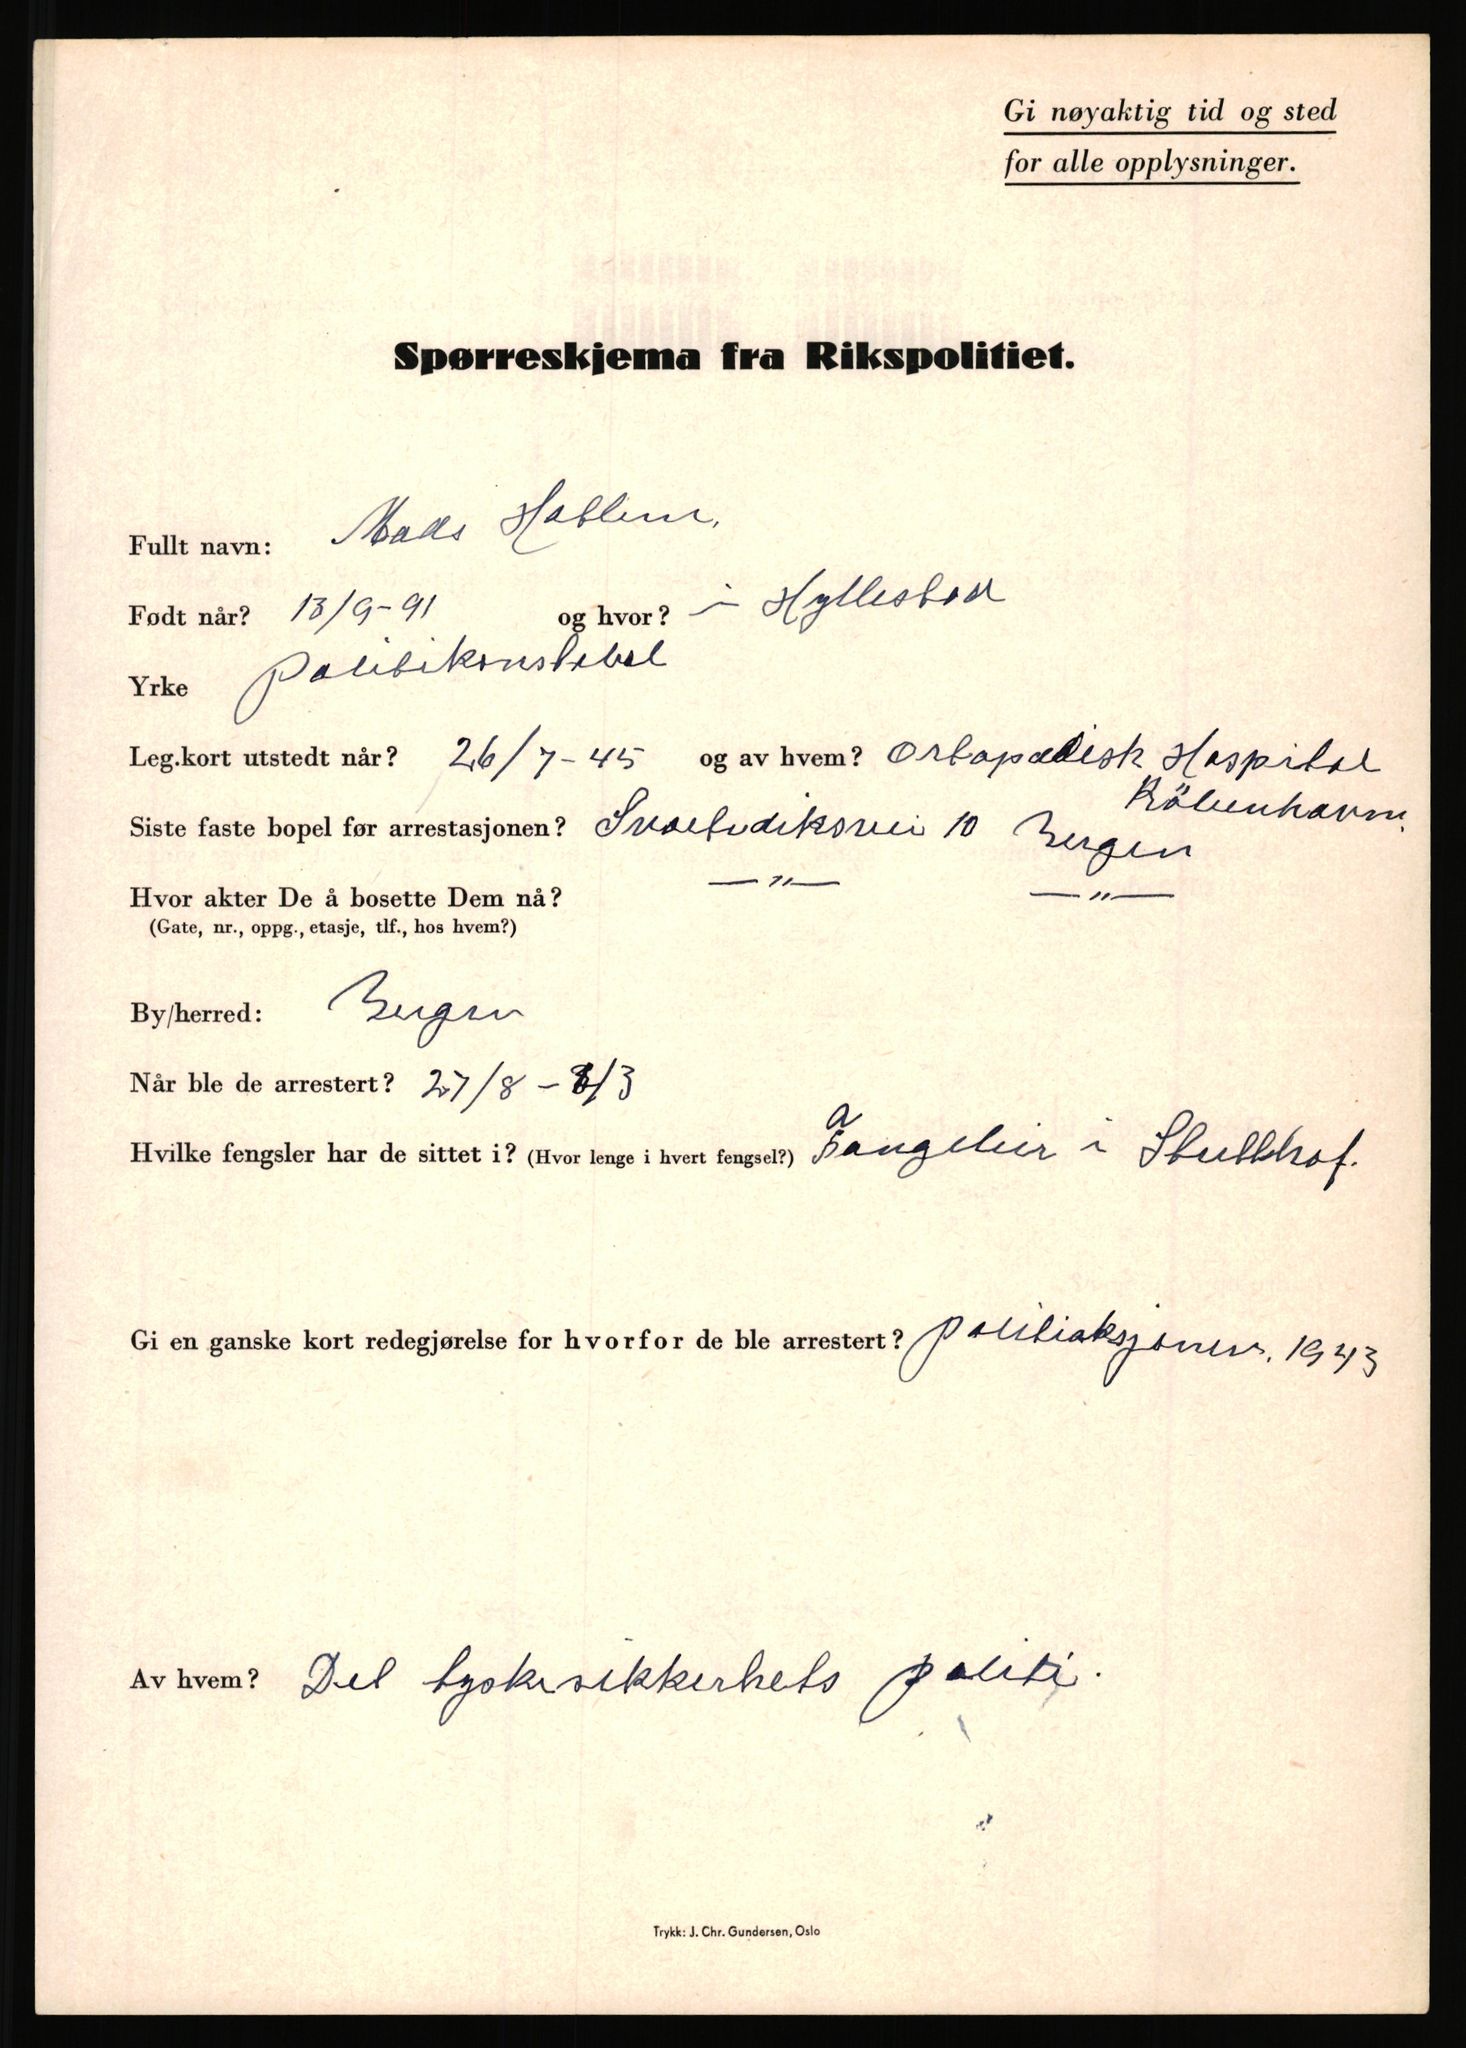 Gi nøyaktig tid og sted
for alle opplysninger.
Spørreskjema fra Rikspolitiet.
Fullt navn: Mads Hatlem.
Født når? 13/9-91 og hvor? i Hyllestad
Yrke Politikonstabel
Leg.kort utstedt når? 26/7-45 og av hvem? Ortopædisk Hospital
Köbenhavn.
Siste faste bopel før arrestasjonen? 10 Bergen
Hvor akter De å bosette Dem nå? —"— —"—
(Gate, nr., oppg., etasje, tlf., hos hvem?)
By/herred: Bergen
Når ble de arrestert? 27/8-
Hvilke fengsler har de sittet i? (Hvor lenge i hvert fengsel?) Fangeleir i Stutthof.
Gi en ganske kort redegjørelse for hvorfor de ble arrestert? Politiaksjonen. 1943
Av hvem? Det tyske sikkerhets politi.
Trykk: J. Chr. Gundersen, Oslo